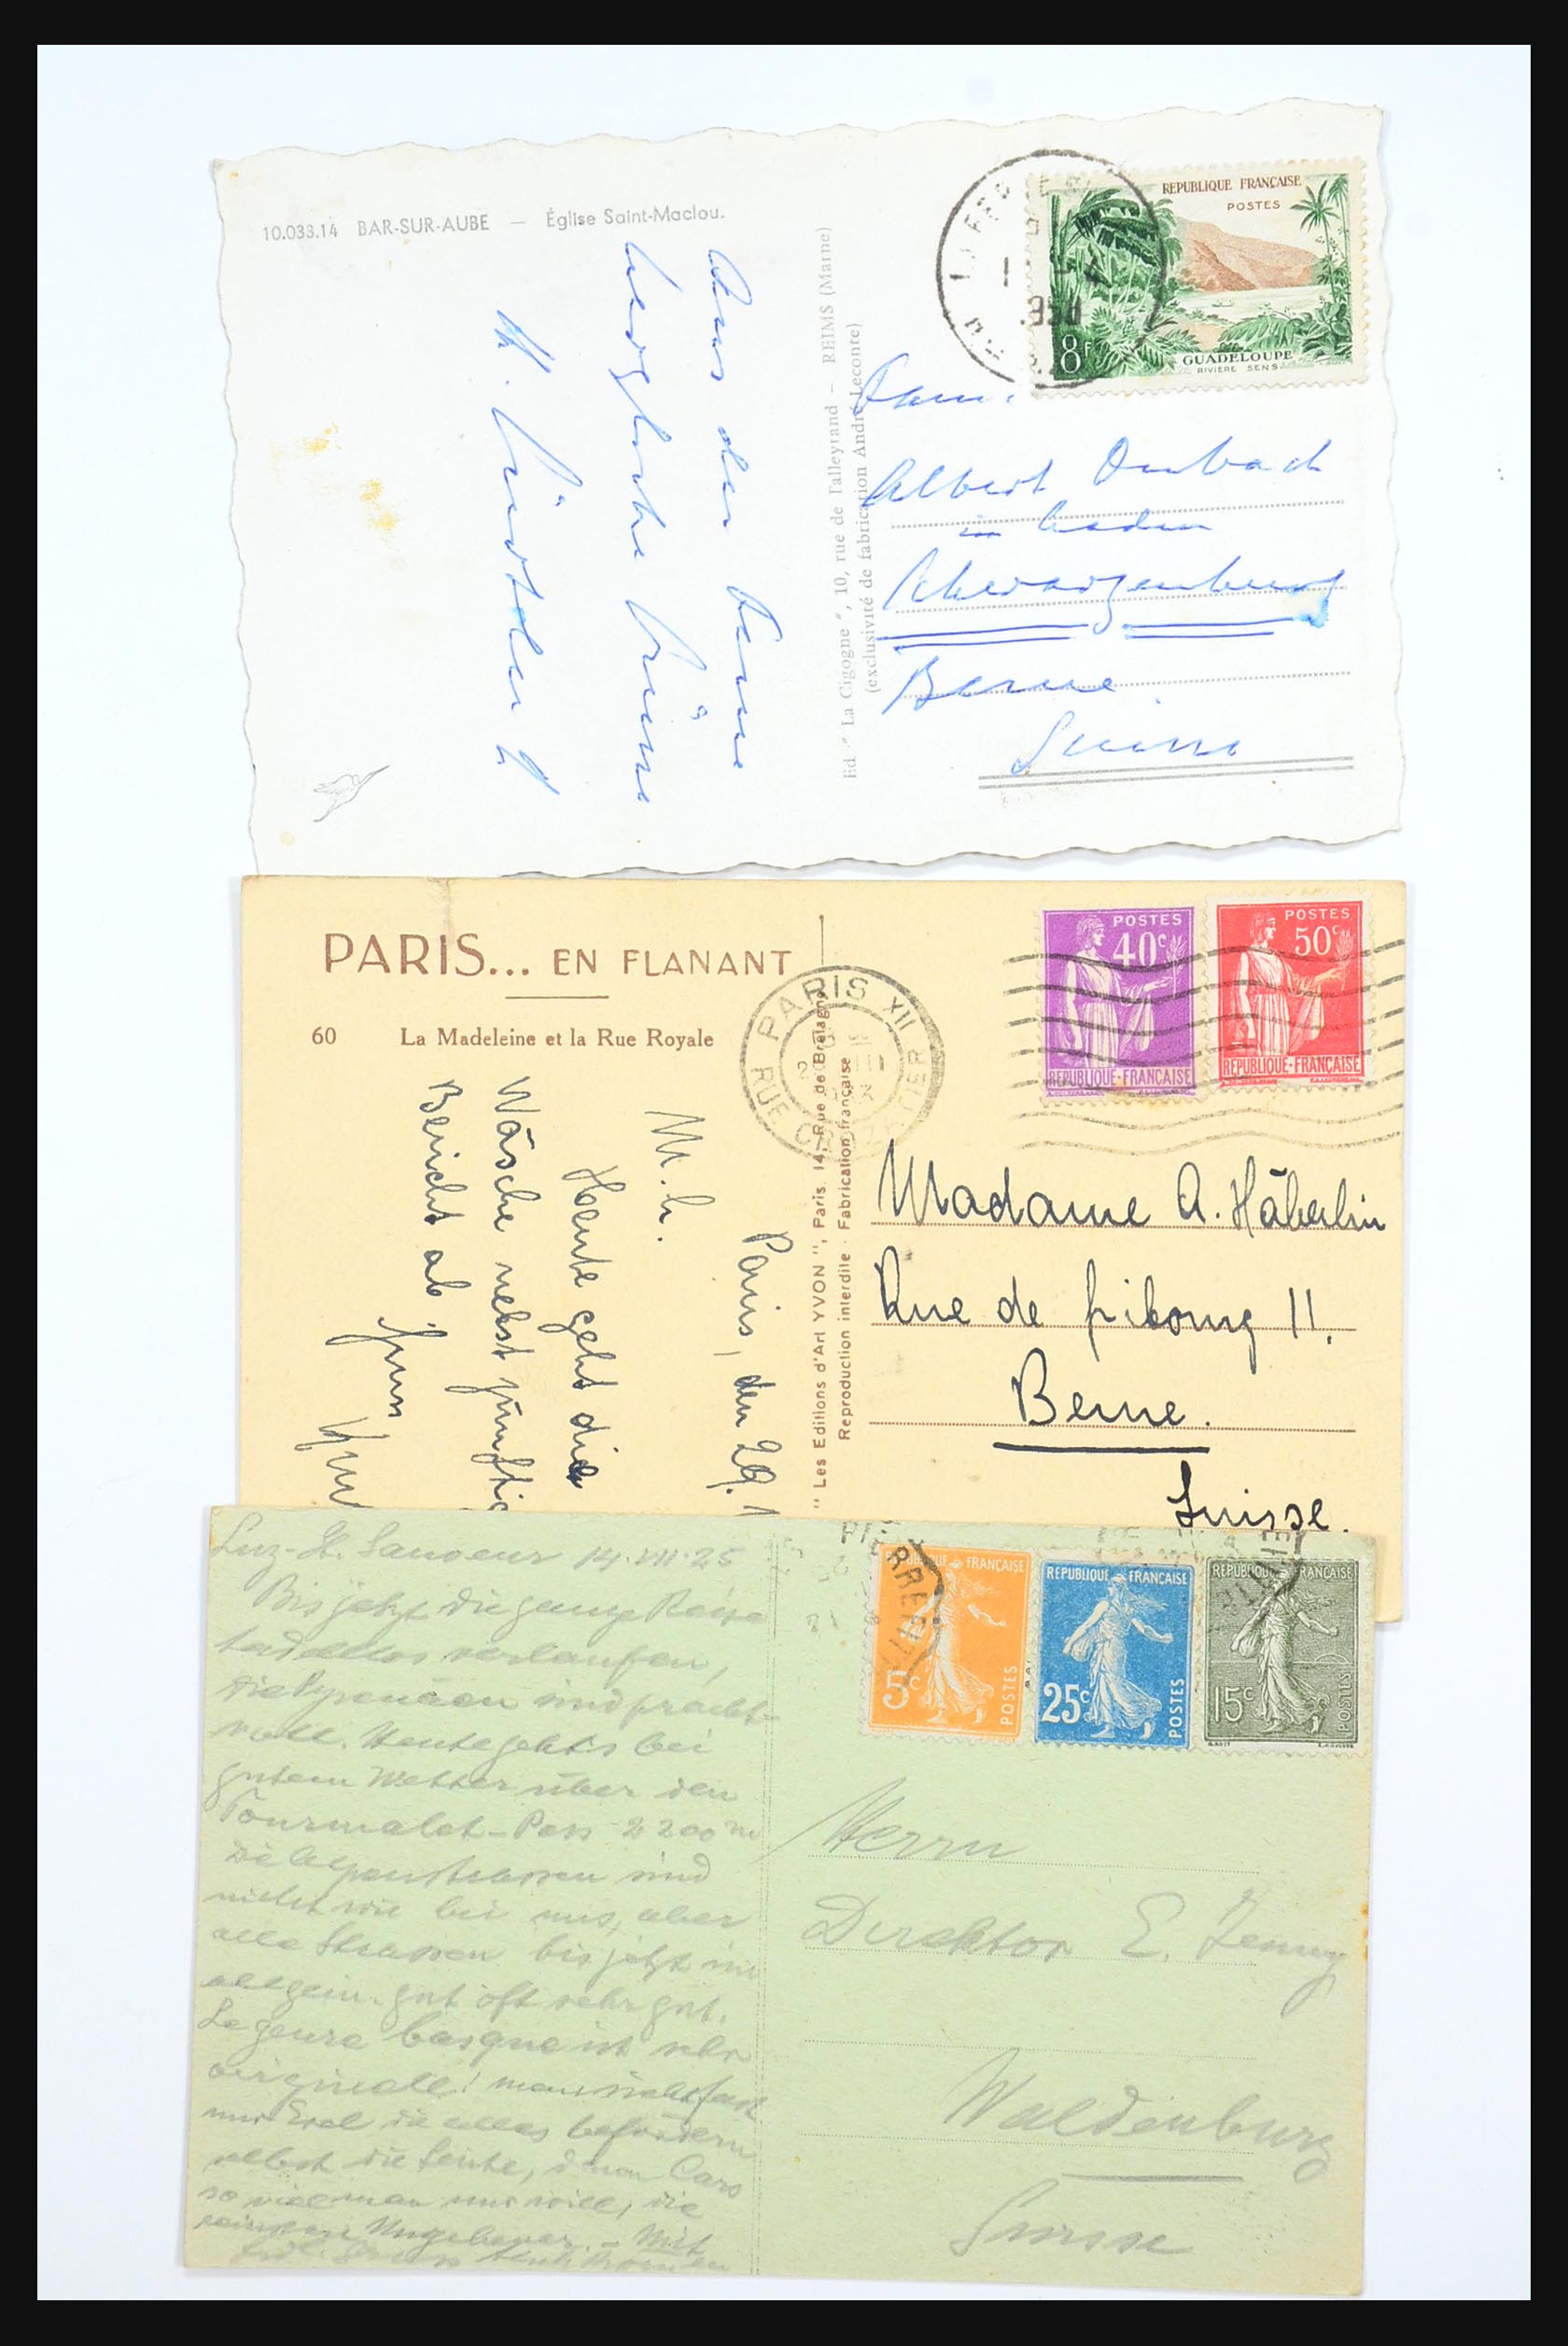 10.033.14 BAR-SUR-AUBE — Église Saint-Maclou.
REPUBLIQUE FRANÇAISE
POSTES
8F
GUADELOUPE
RIVIÈRE SENS
Aus der Ferne
herzliche Grüsse
Ed. " La Cigogne ", 10, rue de Talleyrand — REIMS (Marne)
(exclusivité de fabrication André Leconte)
Fam.
Albert
in Laden
Schwarzenburg
Berne
Suisse
PARIS... EN FLANANT
60 La Madeleine et la Rue Royale
PARIS XII
RUE CROZATIER
POSTES
40c
REPUBLIQUE·FRANÇAISE
POSTES
50c
REPUBLIQUE·FRANÇAISE
Paris, den 29.
M. h.
Heute geht die
Wäsche nebst
Bericht ab
" Les Editions d'Art YVON ", Paris, 14, Rue de Bretagne
Reproduction interdite · Fabrication française
Madame A. Häberlin
Rue de fribourg 11.
Berne.
Suisse.
Luz-St. Sauveur 14.VII.25
Bis jetzt die ganze Reise
tadellos verlaufen,
die Pyrenäen sind pracht-
voll. Heute geht's bei
gutem Wetter über den
Tourmalet-Pass 2200 m
Die Alpenstrassen sind
nicht wie bei uns, aber
alle Strassen bis jetzt im
allgem. gut oft sehr gut.
Le genre basque ist sehr
originell! man sieht fast
nur Esel die alles befördern
selbst die Leute, dann Cars
so viel man nur will, die
reinsten Ungeheuer. – Mit
PIERREFITTE
REPUBLIQUE FRANÇAISE
5c
POSTES
REPUBLIQUE FRANÇAISE
25c
POSTES
REPUBLIQUE FRANÇAISE
15c
POSTES
Herrn
Direktor E. Jenny
Waldenburg
Suisse